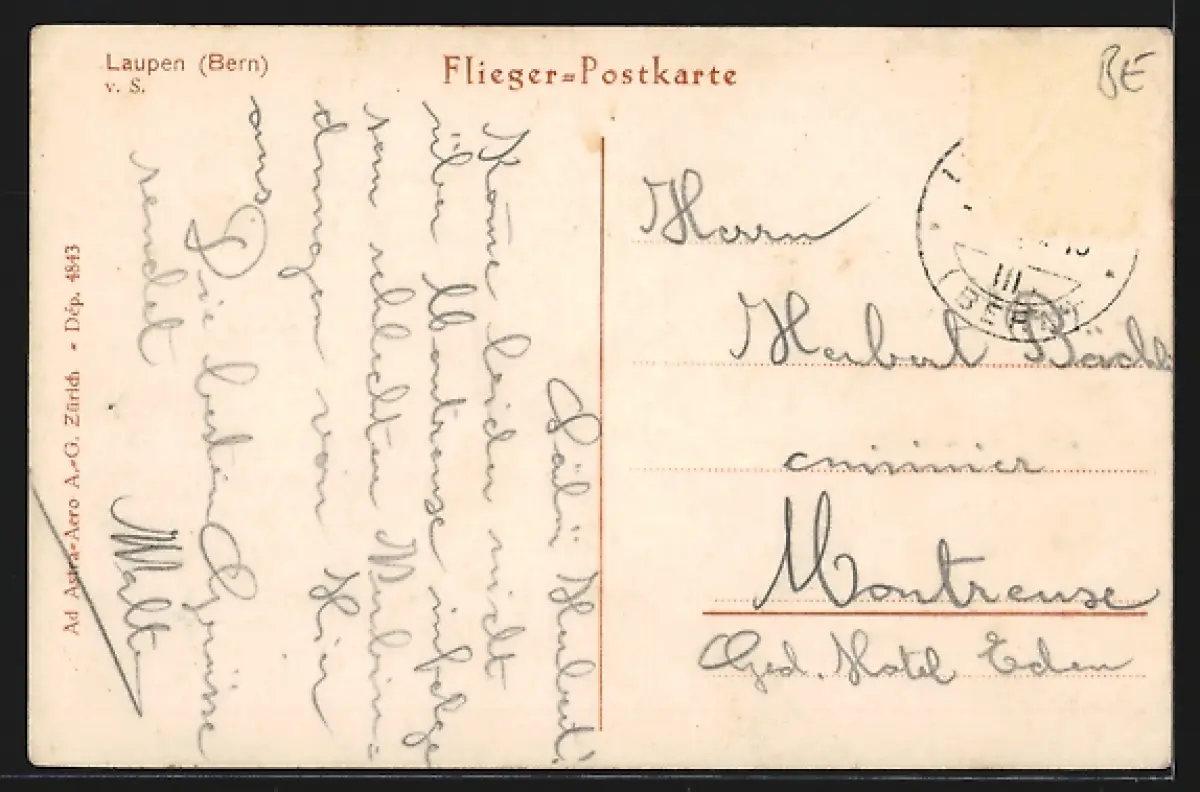 Laupen (Bern)
v. S.
Flieger=Postkarte
BE
Salü Herbert!
Kome leider nicht
über Montreuse infolge
sen schlechten Verbin=
dungen von Hier
aus
Die besten Grüsse
sendet
Walter
Herrn
Herbert Bächli
cuisinier
Montreuse
Grd. Hotel Eden
III
(BERN)
Ad Astra-Aero A.=G. Zürich - Dép. 4843